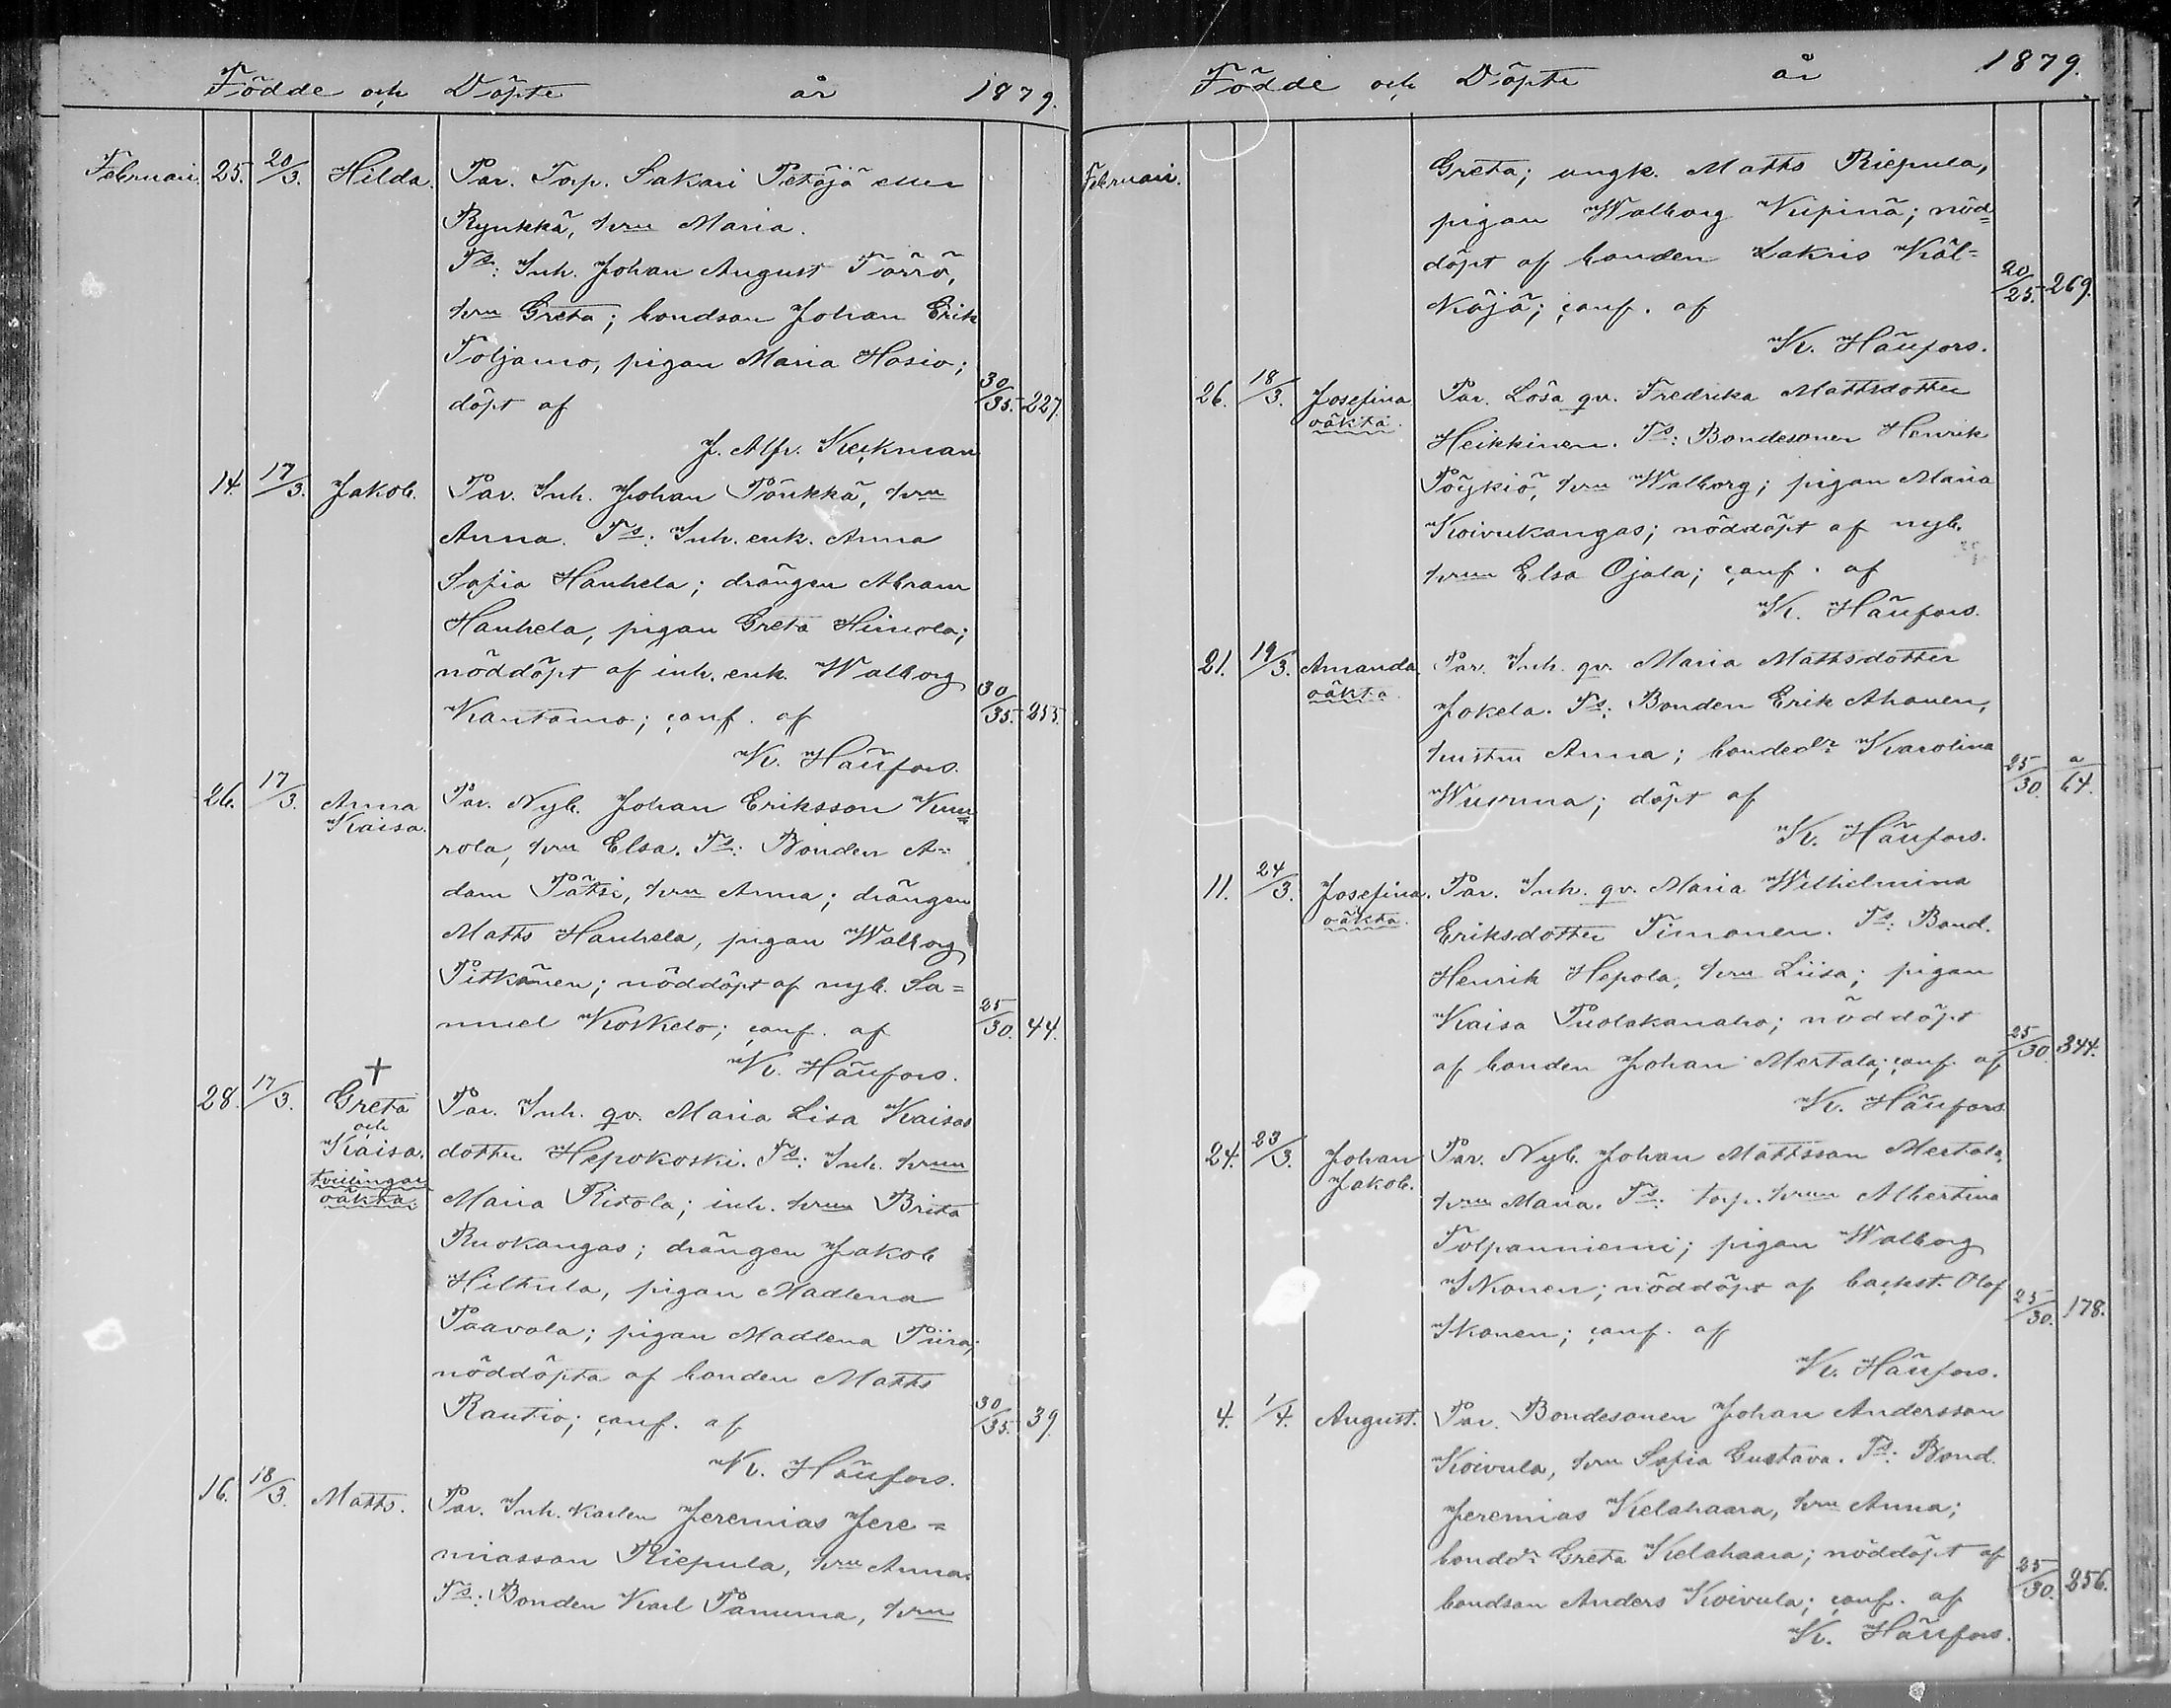 Födde och Döpte år 1879.
Februari. 25. 20/3. Hilda. Par. Torp. Sakari Petäjä eller
Rynkkä, hru Maria.
Ts: Inh. Johan August Törrö,
hru Greta; bondson Johan Erik
Toljamo, pigan Maria Hosio;
döpt af 30/35. 227.
J. Alfr. Keckman
14. 17/3. Jakob. Par. Inh. Johan Pöukkä, hru
Anna. Ts: Inh. enk. Anna
Sofia Hanhela; drängen Abram
Hanhela, pigan Greta
nöddöpt af inh. enk. Walborg
Kantamo; conf. af 30/35. 255.
K. Häufors.
26. 17/3. Anna Kaisa. Par. Nyb. Johan Eriksson
rola, hru Elsa. Ts: Bonden A=
dam Pätsi, hru Anna; drängen
Matts Hanhela, pigan Walborg
Pitkänen; nöddöpt af nyb. Sa=
muel Koskelo; conf. af 25/30. 44.
K. Häufors.
28. 17/3. + Greta och Kaisa. tvillingar oäkta. Par. Inh. qv. Maria Lisa Kaisas
dotter Hepokoski. Ts: Inh. hrun
Maria Ristola; inh. hrun Brita
Ruokangas; drängen Jakob
Hiltula, pigan Madlena
Paavola; pigan Madlena Piira;
nöddöpta af bonden Matts
Rautio; conf. af 30/35. 39.
K. Häufors.
16. 18/3. Matts. Par. Inh. karlen Jeremias Jere=
miasson Riepula, hru Anna.
Ts: Bonden Karl Pamuma, hru
Födde och Döpte år 1879.
Februari. Greta; ungk. Matts Riepula,
pigan Walborg Niipinä; nöd=
döpt af bonden Zakris Käl=
käjä; conf. af 20/25. 269.
K. Häufors.
26. 18/3. Josefina oäkta. Par. Lösa qv. Fredrika Mattsdotter
Heikkinen. Ts: Bondesonen Henrik
Pöykiö, hru Walborg; pigan Maria
Koivukangas; nöddöpt af nyb.
hrun Elsa Ojala; conf. af
K. Häufors.
21. 19/3. Amanda oäkta. Par. Inh. qv. Maria Mattsdotter
Jokela. Ts: Bonden Erik Ahonen,
hustru Anna; bondedr Karolina
Wuorma; döpt af 25/30. a/64.
K. Häufors.
11. 24/3. Josefina. oäkta. Par. Inh. qv. Maria Wilhelmina
Eriksdotter Timonen. Ts: Bond.
Henrik Hepola, hru Liisa; pigan
Kaisa Puolakanaho; nöddöpt
af bonden Johan Mertala; conf. af 25/30. 344.
K. Häufors
24. 23/3. Johan Jakob. Par. Nyb. Johan Mattsson Mertala,
hru Maria. Ts: torp. hrun Albertina
Tolpanniemi; pigan Walborg
Ikonen; nöddöpt af backst. Olof
Ikonen; conf. af 25/30. 178.
K. Häufors.
4. 1/4. August. Par. Bondesonen Johan Andersson
Koivula, hru Sofia Gustava. Ts: Bond.
Jeremias Kelahaara, hru Anna;
bonddr Greta Kelahaara; nöddöpt af
bondson Anders Koivula; conf. af 25/30. 256.
K. Häufors.